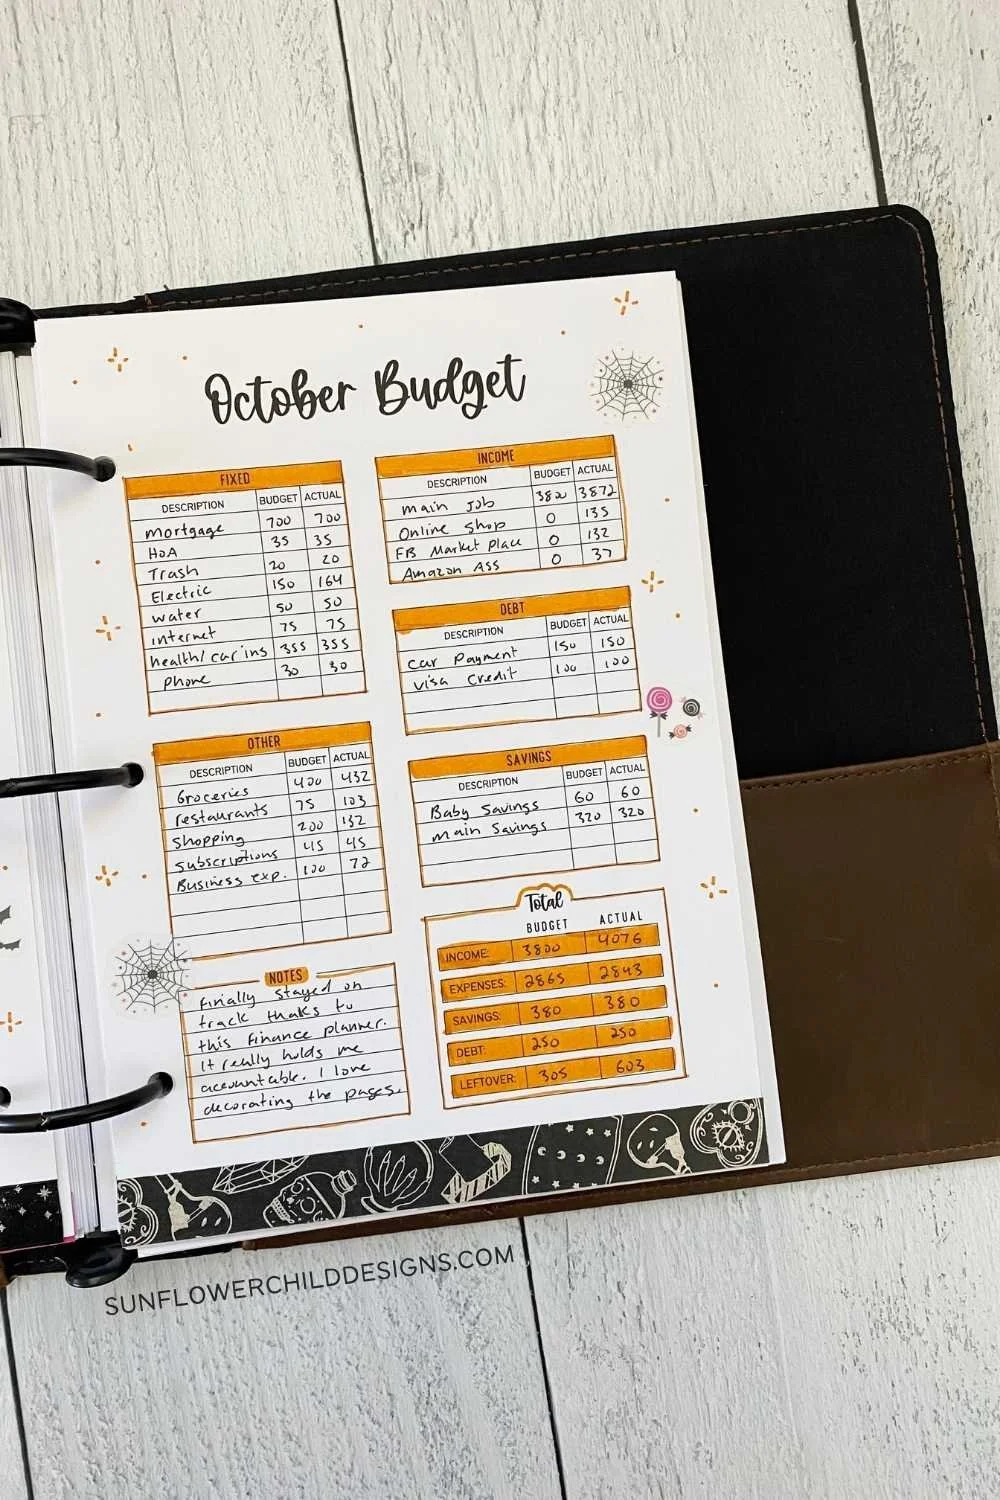 October Budget
FIXED
DESCRIPTION BUDGET ACTUAL
mortgage 700 700
HOA 35 35
Trash 20 20
Electric 150 164
water 50 50
internet 75 75
health/car ins 355 355
phone 30 30
INCOME
DESCRIPTION BUDGET ACTUAL
main job 3800 3872
Online shop 0 135
FB Market place 0 132
Amazon ASS 0 37
DEBT
DESCRIPTION BUDGET ACTUAL
car payment 150 150
visa credit 100 100
OTHER
DESCRIPTION BUDGET ACTUAL
Groceries 400 432
restaurants 75 103
shopping 200 132
subscriptions 45 45
Business exp. 100 72
SAVINGS
DESCRIPTION BUDGET ACTUAL
Baby Savings 60 60
main Savings 320 320
NOTES
Finally stayed on
track thanks to
this finance planner.
It really holds me
accountable. I love
decorating the pages.
Total
BUDGET ACTUAL
INCOME: 3800 4076
EXPENSES: 2865 2843
SAVINGS: 380 380
DEBT: 250 250
LEFTOVER: 305 603
SUNFLOWERCHILDDESIGNS.COM